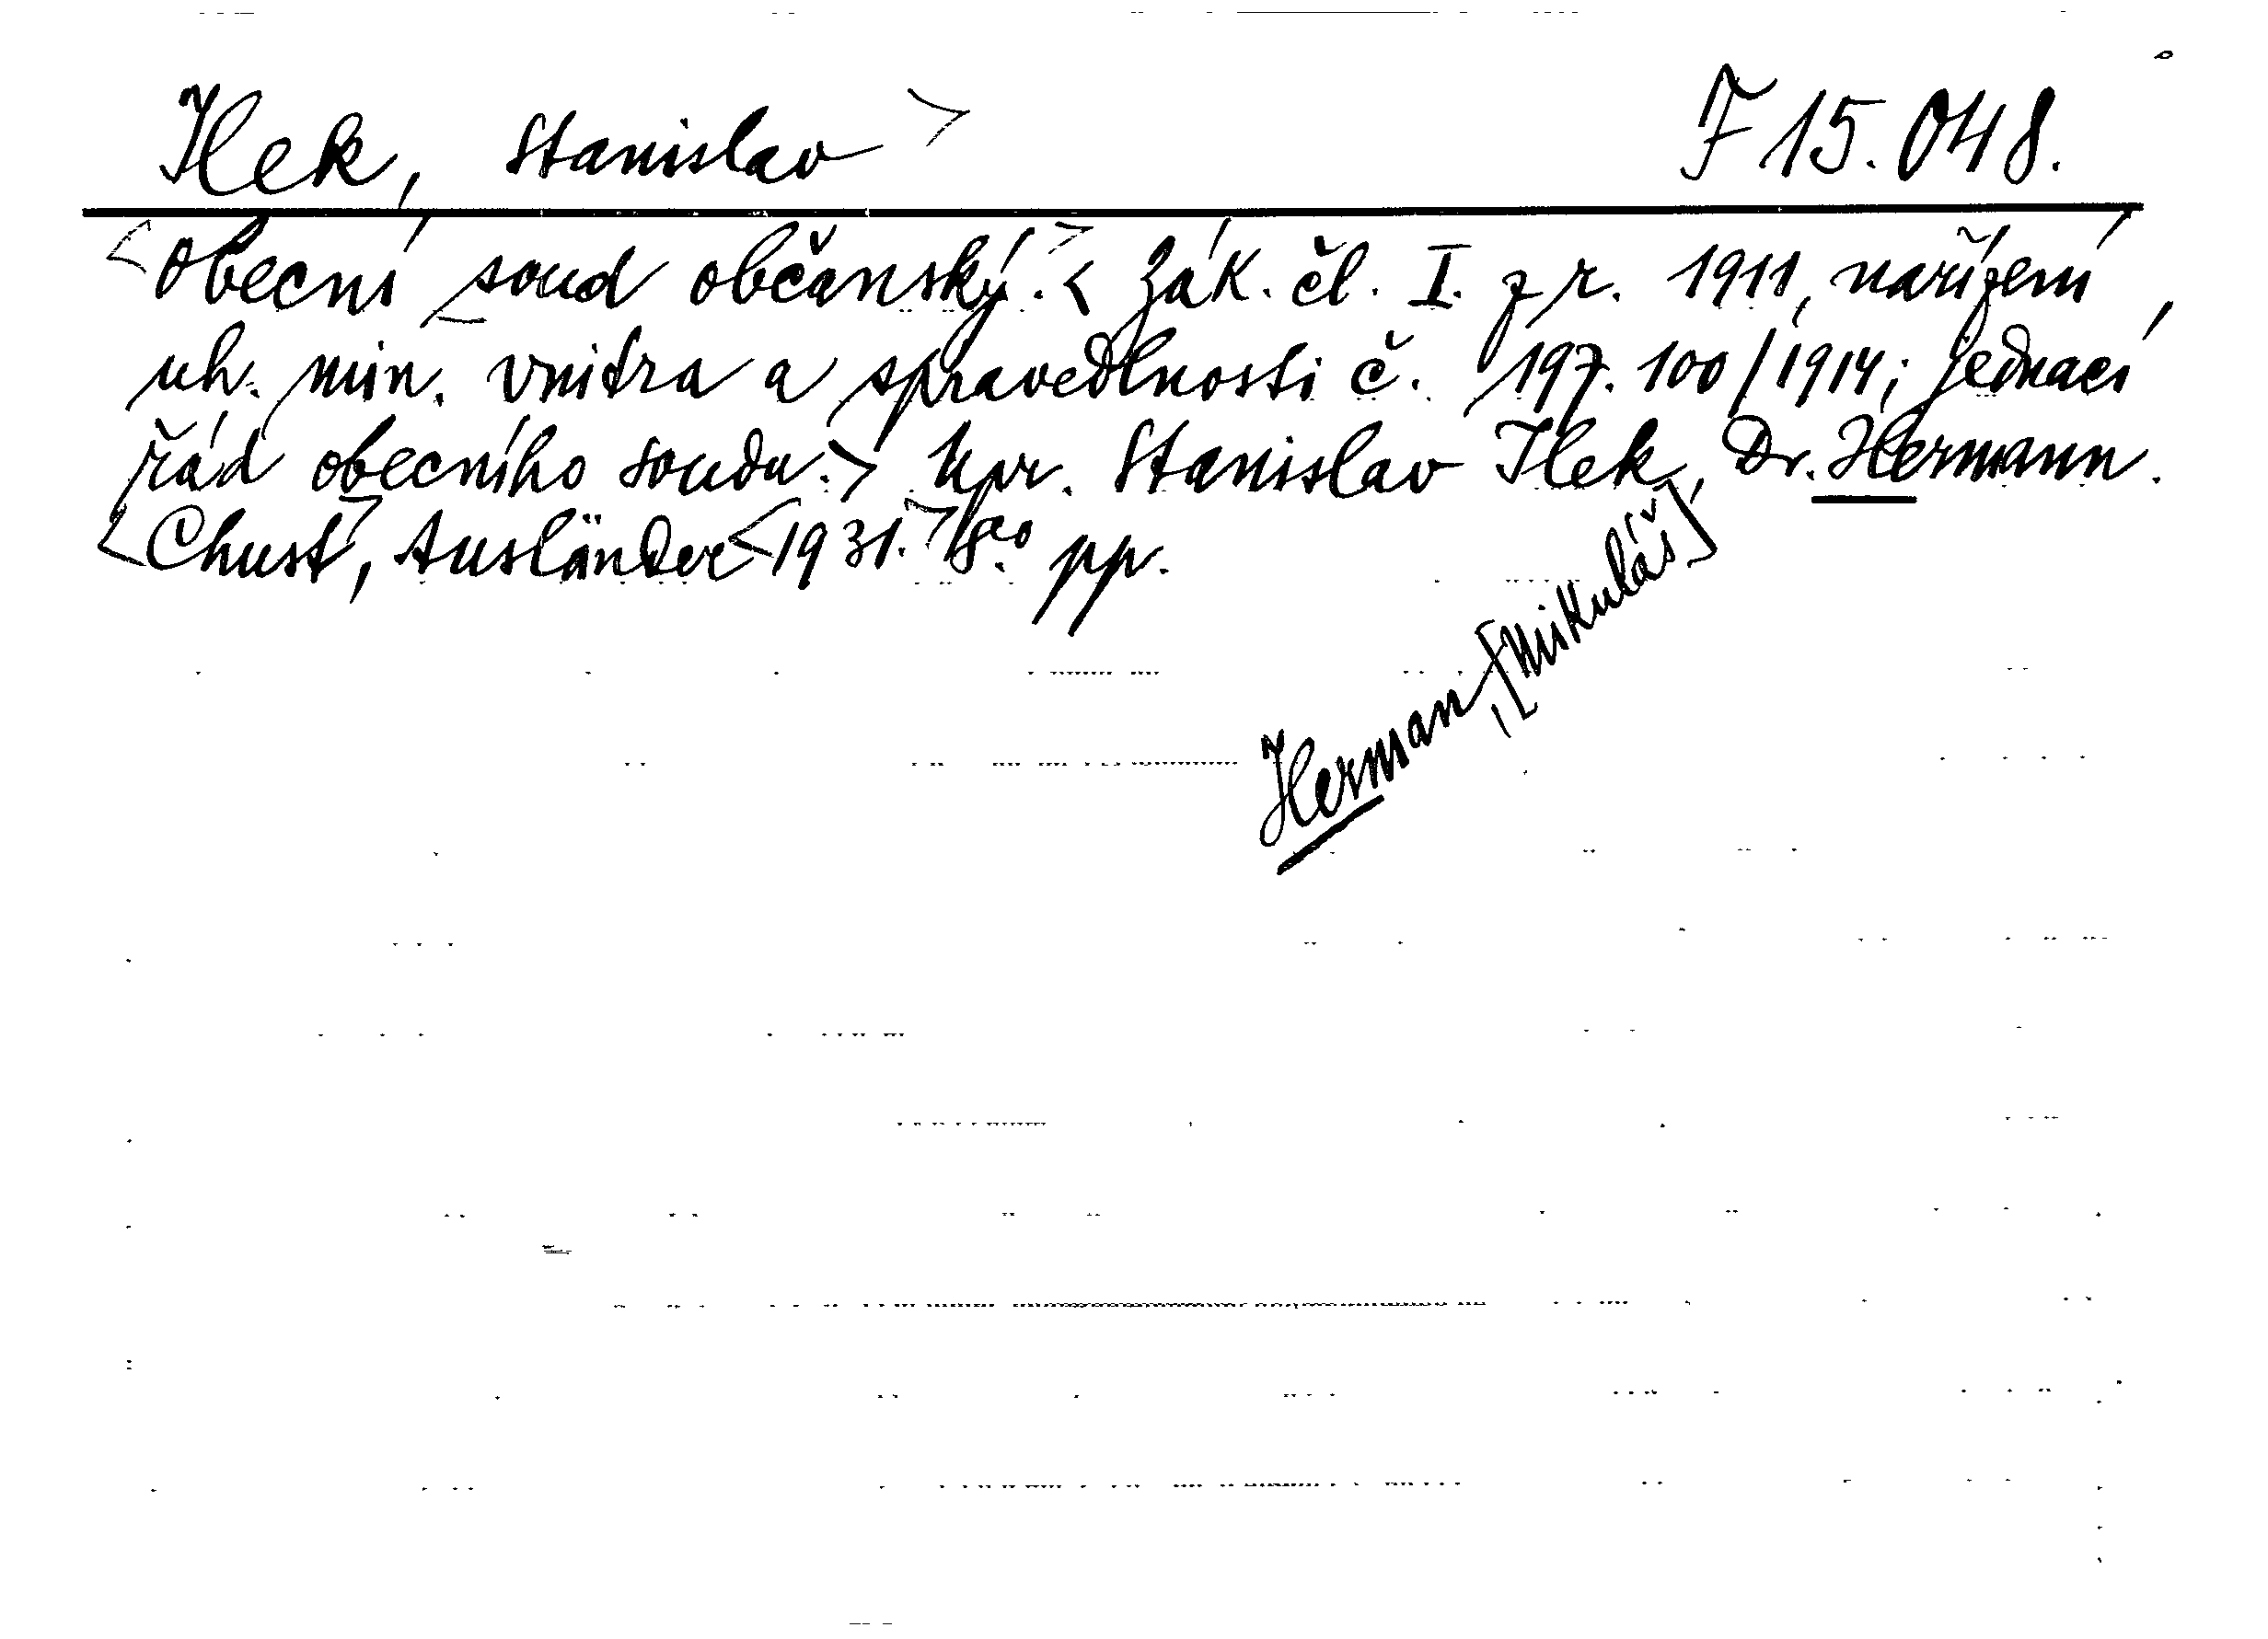 Ilek, Stanislav > F 15.048.
<Obecní soud občanský.> < Zák. čl. I. z r. 1911, nařízení
uh. min. vnitra a spravedlnosti č. 197.100/1914; jednací
řád obecního soudu.> Upr. Stanislav Ilek, Dr. Hermann.
<Chust>, Ausländer <1931.> 8° pp.
Herman, [Mikuláš]